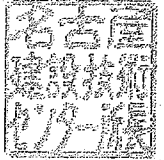 名古屋
建設技術
センター蔵